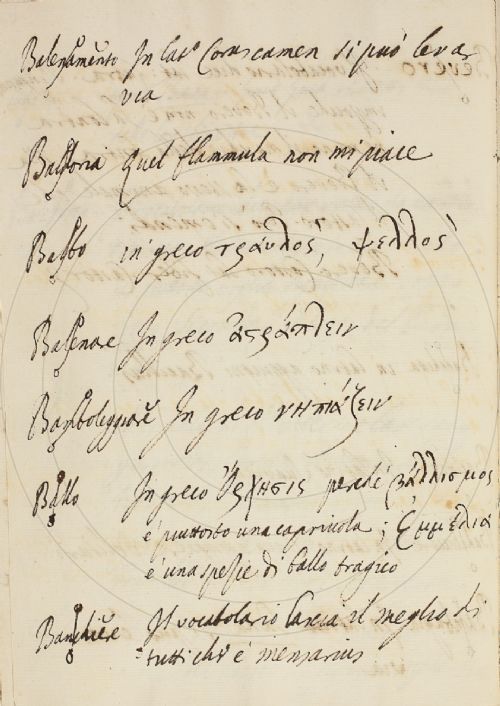 Balenamento In lat.º Coruscamen si può levar
via
Baldoria Quel flammula non mi piace
Balbo in greco τραυλος, ψελλος
Balenare In greco ἀστράπτειν
Bamboleggiare In greco νηπιάζειν
Ballo In greco Ὄρχησις perché βάλλισμος
è piuttosto una capriuola; Ἐμμέλια
è una spezie di ballo tragico
Banchiere Il vocabolario lascia il meglio di
tutti che è mensarius